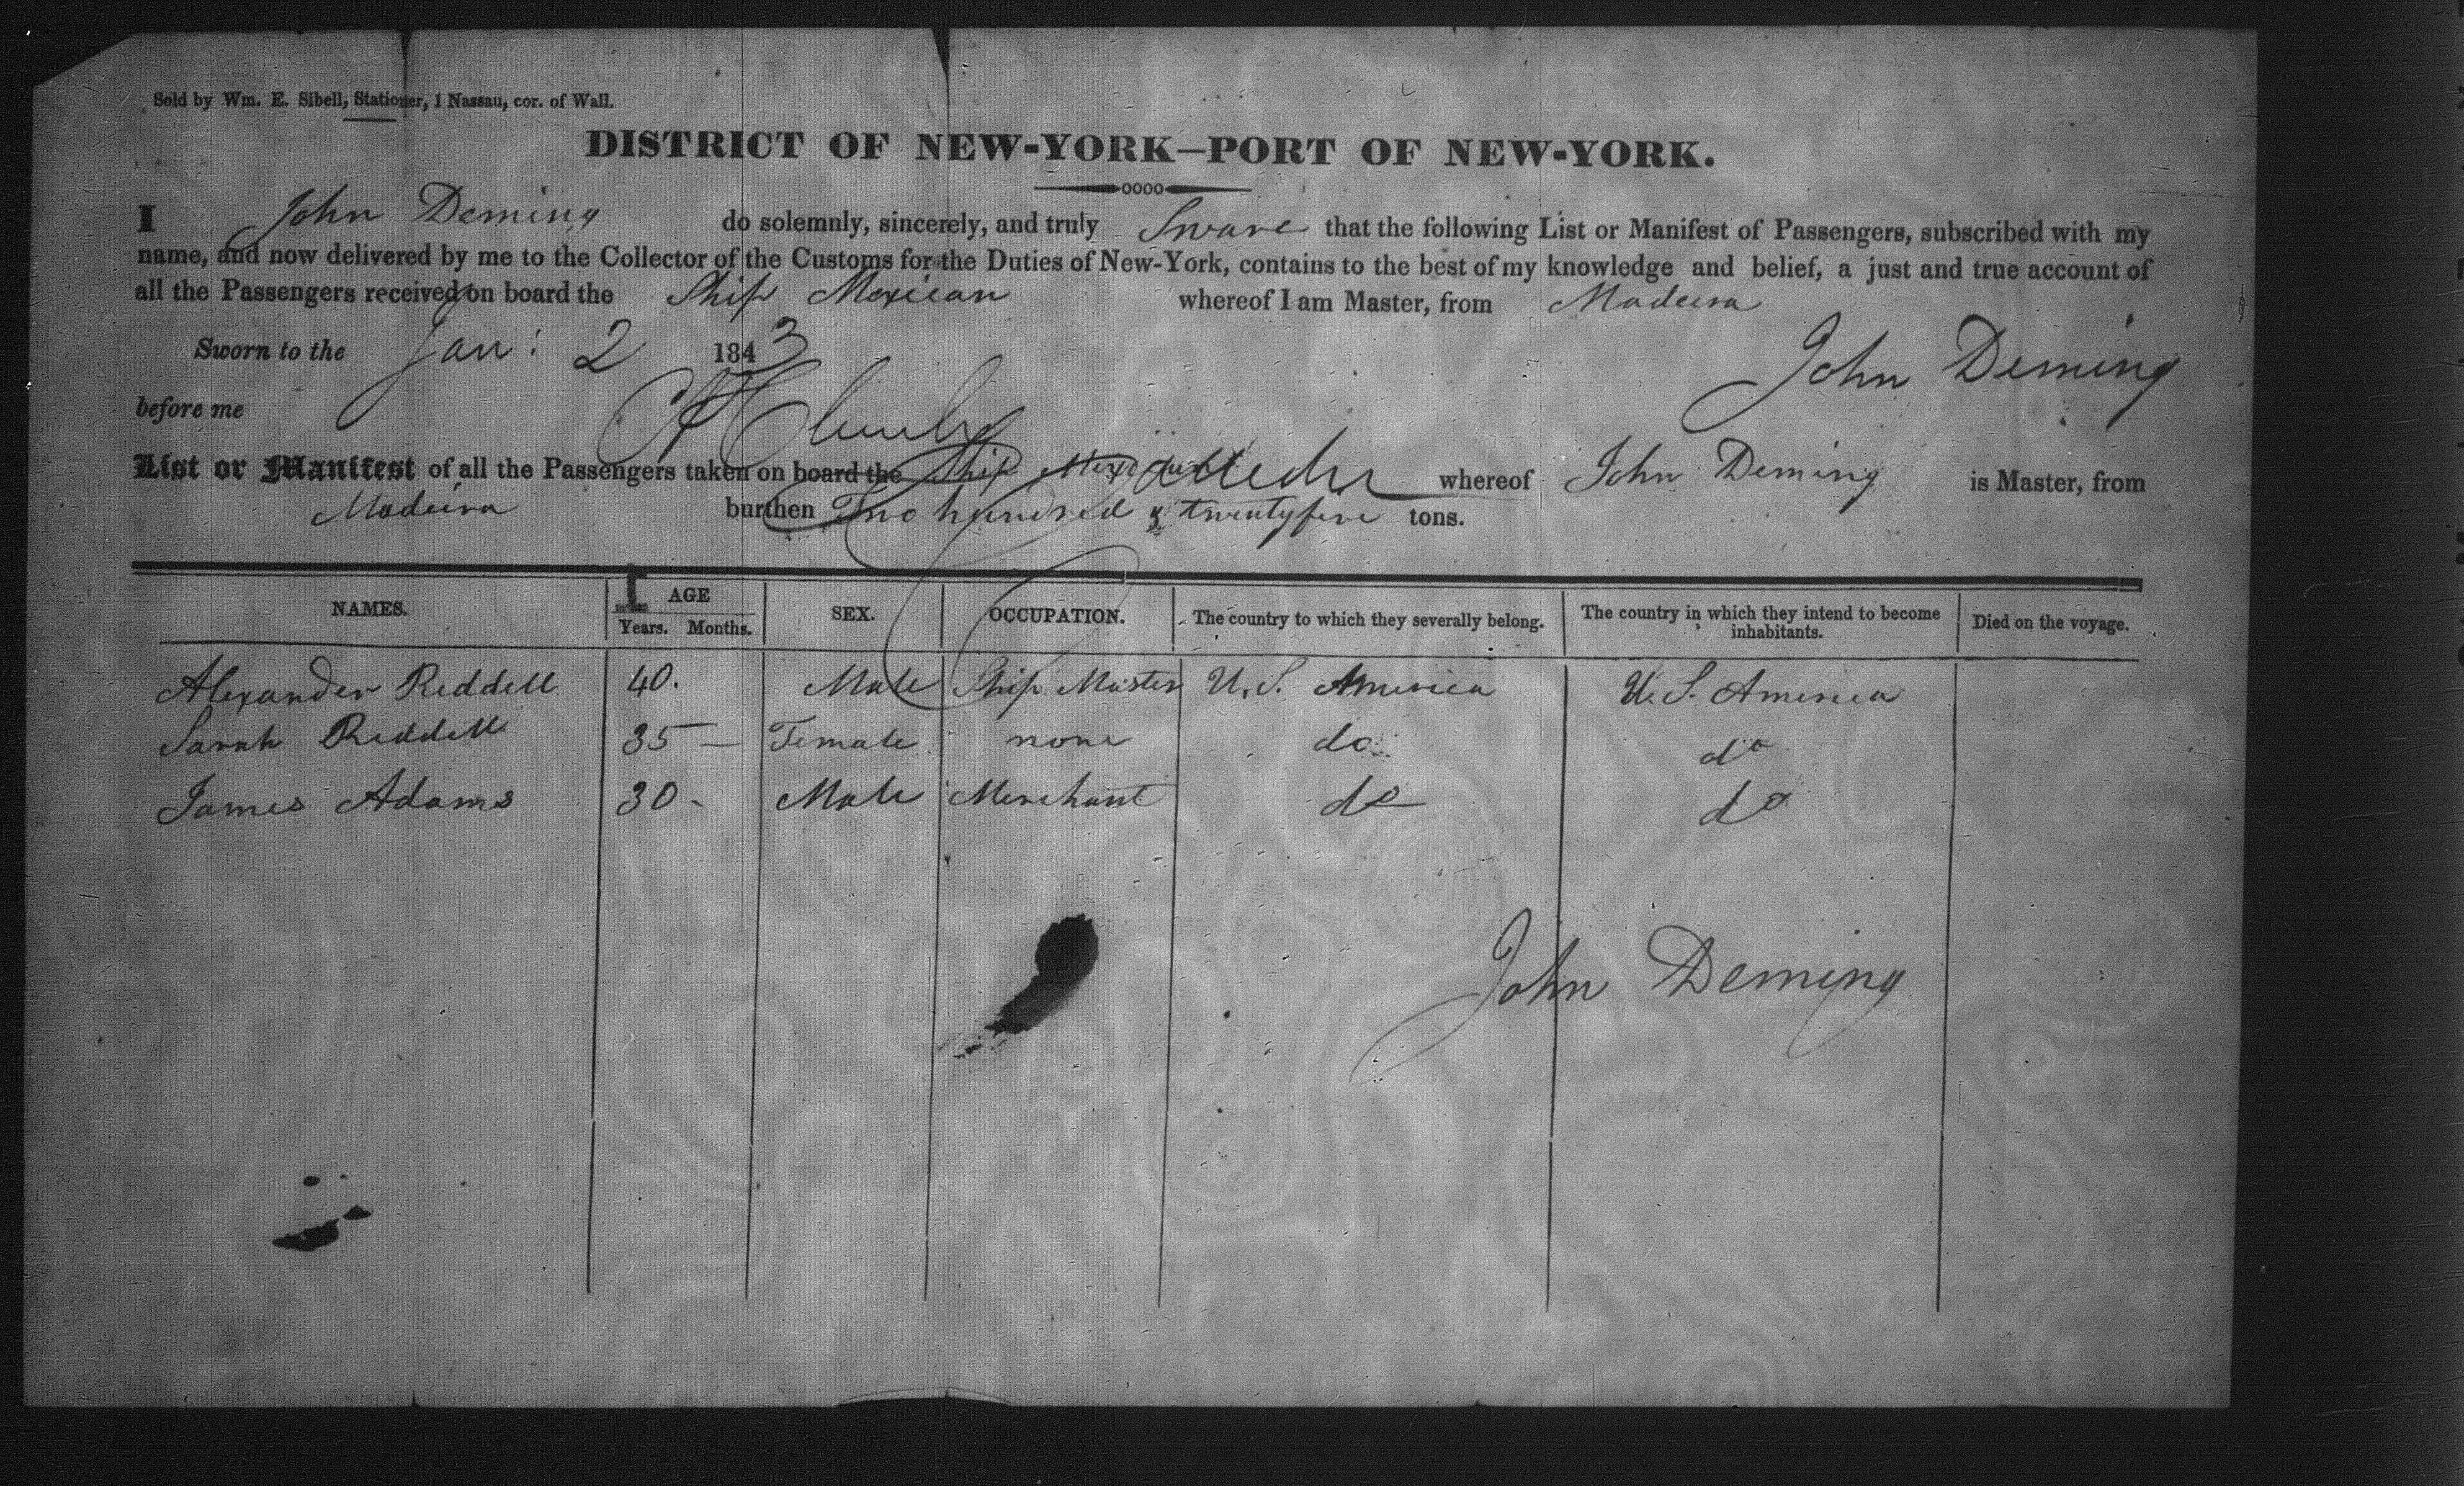 Sold by Wm. E. Sibell, Stationer, 1 Nassau, cor. of Wall.
DISTRICT OF NEW-YORK—PORT OF NEW-YORK.
I John Deming do solemnly, sincerely, and truly Sware that the following List or Manifest of Passengers, subscribed with my
name, and now delivered by me to the Collector of the Customs for the Duties of New-York, contains to the best of my knowledge and belief, a just and true account of
all the Passengers received on board the Ship Mexican whereof I am Master, from Madeira
Sworn to the Jan: 2 1843
John Deming
before me
List or Manifest of all the Passengers taken on board the Ship whereof John Deming is Master, from
Madeira burthen Two hundred & twenty five tons.
NAMES. AGE SEX. OCCUPATION. The country to which they severally belong. The country in which they intend to become inhabitants. Died on the voyage.
Years. Months.
Alexander Riddell 40. Male Ship Master U.S. America U.S. America
Sarah Riddell 35 — Female none do do
James Adams 30 - Male Merchant do do
John Deming